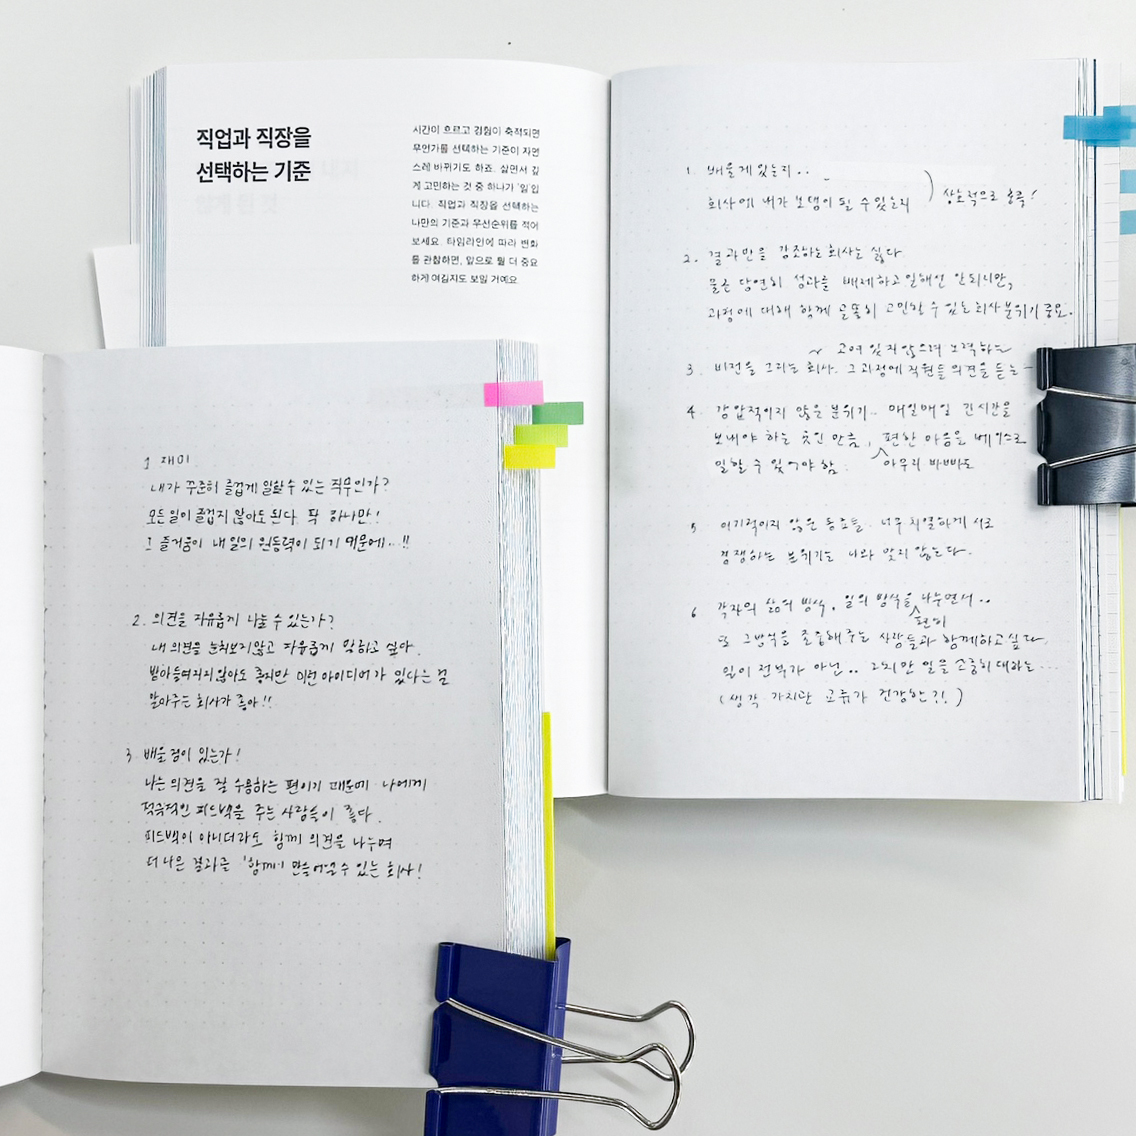 직업과 직장을
선택하는 기준
시간이 흐르고 경험이 축적되면
무언가를 선택하는 기준이 자연
스레 바뀌기도 하죠. 살면서 깊
게 고민하는 것 중 하나가 '일'입
니다. 직업과 직장을 선택하는
나만의 기준과 우선순위를 적어
보세요. 타임라인에 따라 변화
를 관찰하면, 앞으로 뭘 더 중요
하게 여길지도 보일 거예요.
1. 배울게 있는지..
회사에 내가 보탬이 될 수 있는지
상호적으로 충족!
2. 결과만을 강조하는 회사는 싫다
물론 당연히 성과를 배제하고 일해선 안되니만,
과정에 대해 함께 고민할 수 있는 회사 분위기 중요.
~ 고여 있지 않으려 노력하는
3. 비전을 그리는 회사. 그 과정에 직원들 의견을 듣는
4. 강압적이지 않은 분위기.. 매일매일 긴 시간을
보내야 하는 곳인 만큼, 편한 마음을 베이스로
일할 수 있어야 함. 아무리 바빠도
5 이기적이지 않은 동료들. 너무 치열하게 서로
경쟁하는 분위기는 나와 맞지 않는다.
6 각자의 삶의 방식, 일의 방식을 나누면서..
또 그 방식을 존중해주는 사람들과 함께하고 싶다.
일이 전부가 아닌.. 그치만 일을 소중히 대하는...
(생각 가치관 교류가 건강한?!)
1 재미
내가 꾸준히 즐겁게 일할 수 있는 직무인가?
모든 일이 즐겁지 않아도 된다. 딱 하나만!
그 즐거움이 내 일의 원동력이 되기 때문에...!!
2. 의견을 자유롭게 나눌 수 있는가?
내 의견을 눈치보지 않고 자유롭게 말하고 싶다.
받아들여지지 않아도 좋지만 이런 아이디어가 있다는 걸
알아주는 회사가 좋아!!
3 배울 점이 있는가!
나는 의견을 잘 수용하는 편이기 때문에 나에게
적극적인 피드백을 주는 사람들이 좋다.
피드백이 아니더라도 함께 의견을 나누며
더 나은 결과를 '함께' 만들어낼 수 있는 회사!